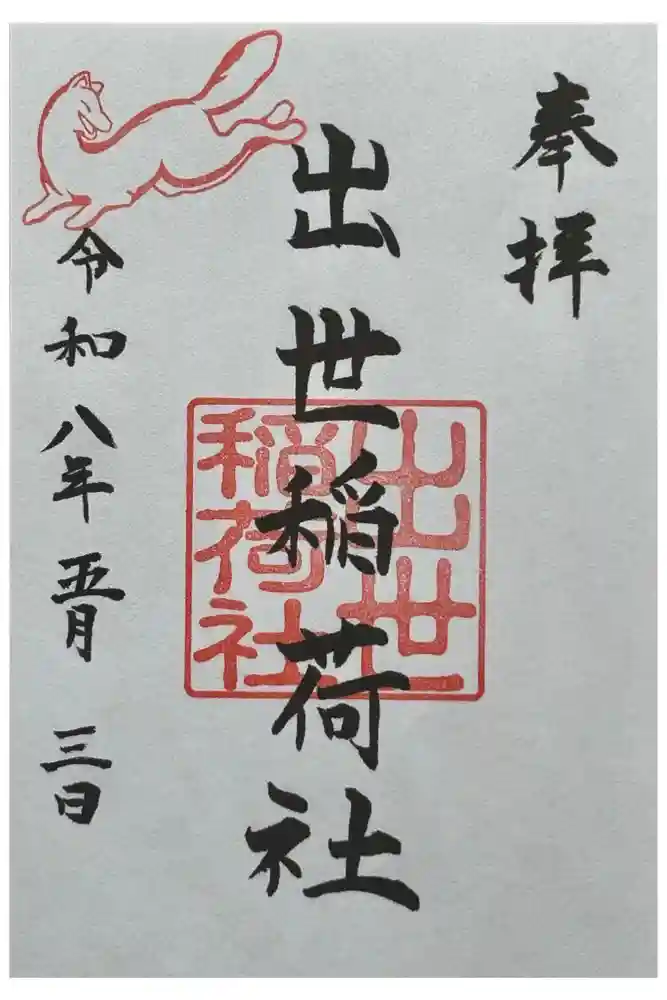 奉拝
出世稲荷社
出世
稲荷社
令和八年五月三日